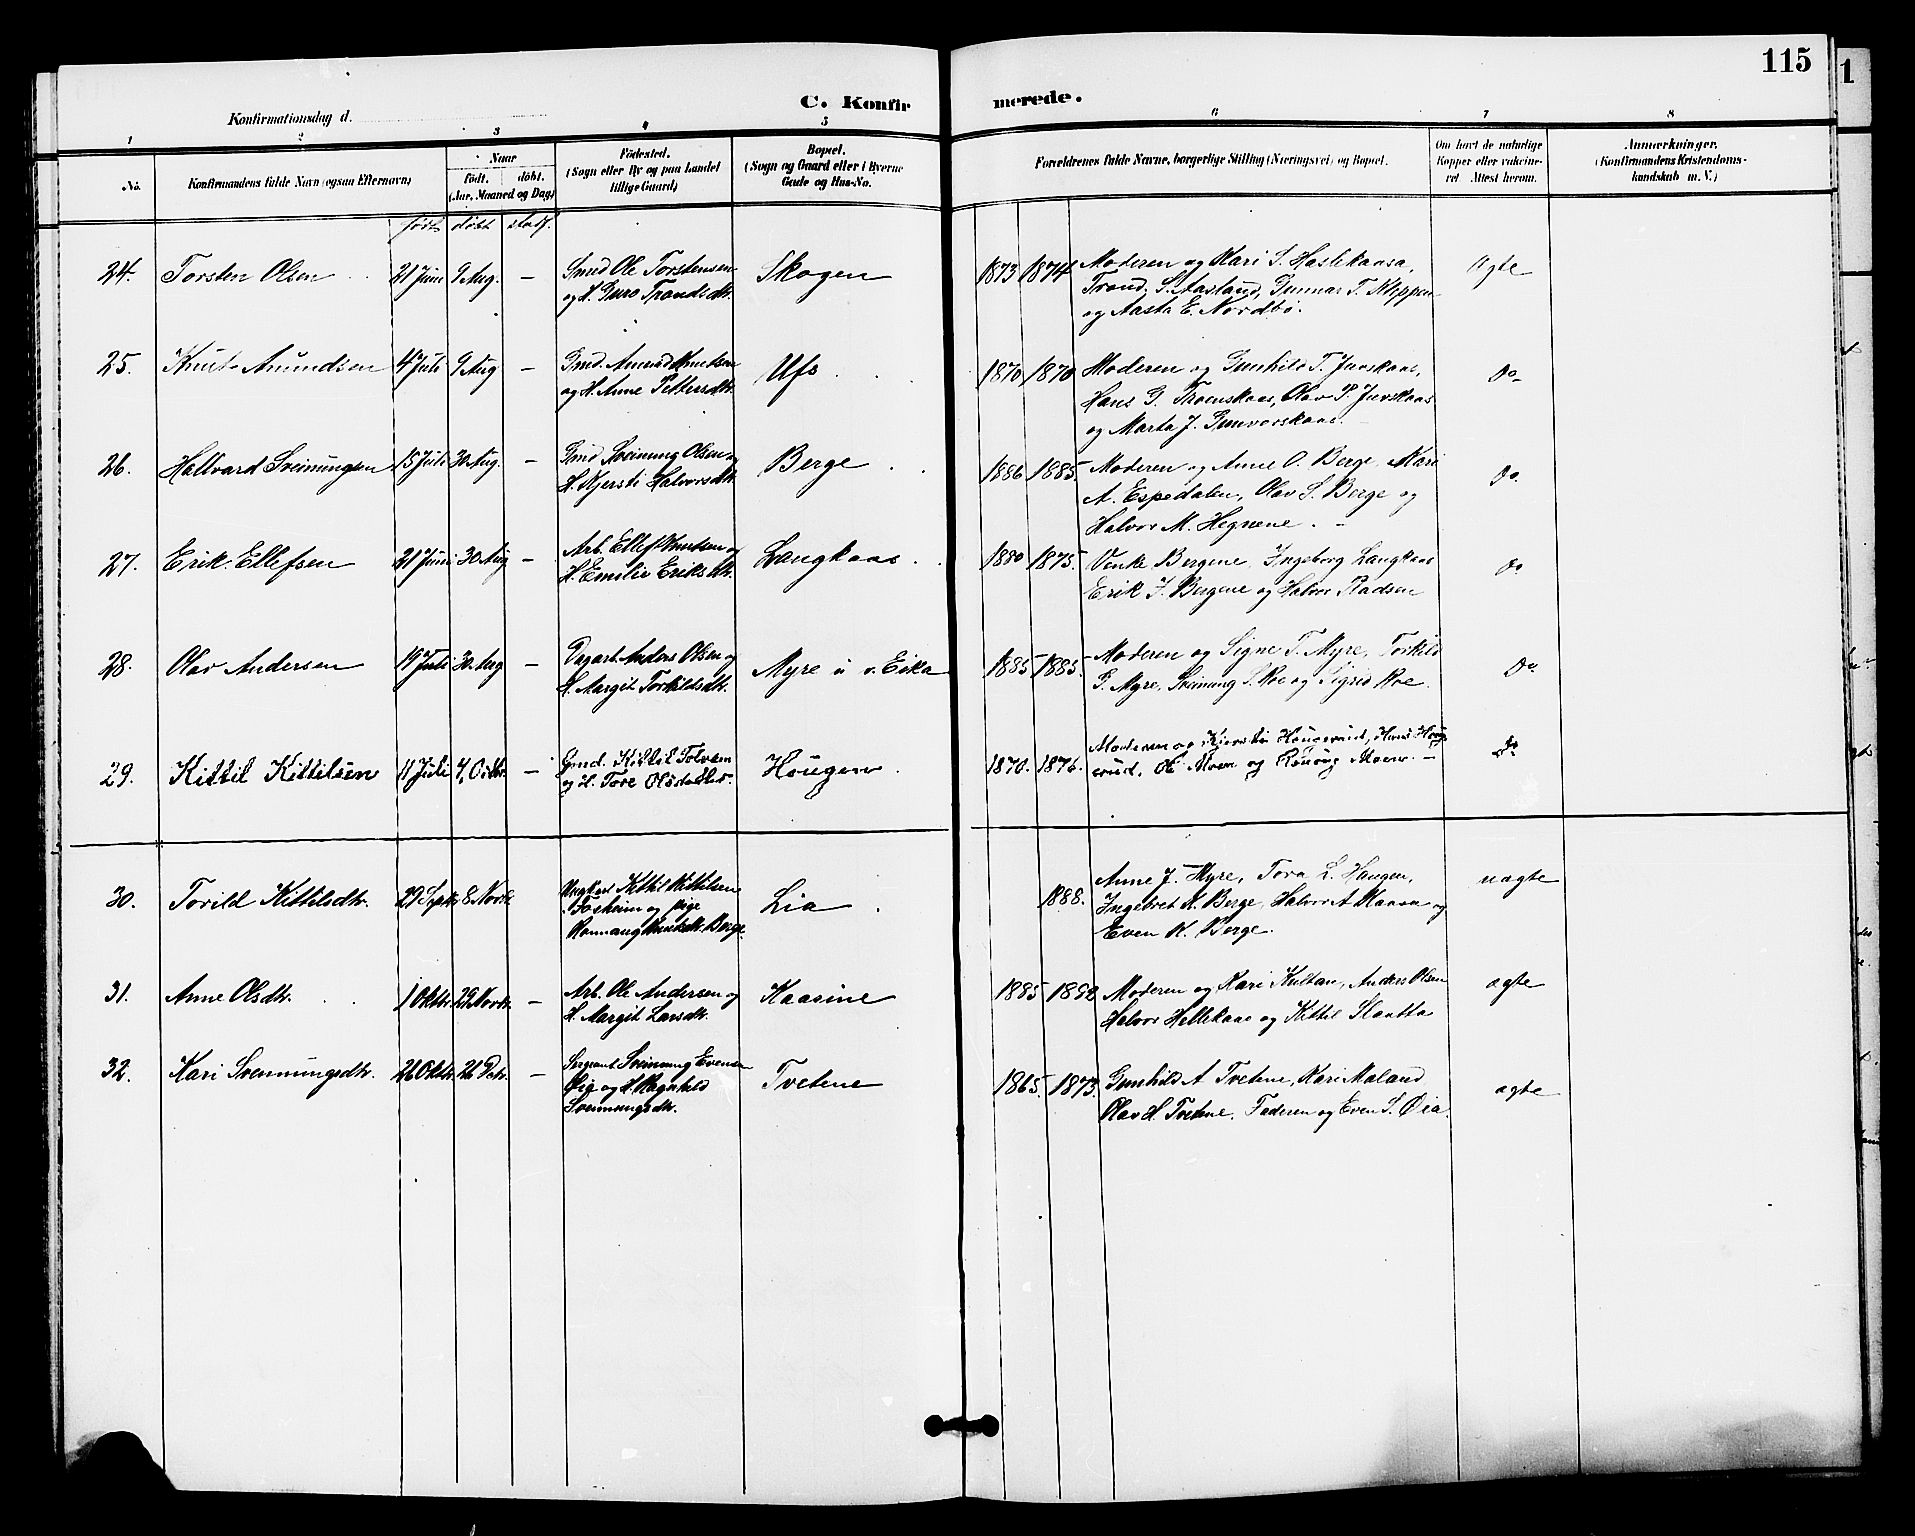 115
1
C. Konfir
merede.
Konfirmationsdag d.
1 2 3 4 5 6 7 8
No.
Konfirmandens fulde Navn (ogsaa Efternavn)
Naar
født. døbt.
(Aar, Maaned og Dag)
Fødested.
(Sogn eller By og paa Landet
tillige Gaard)
Bopæl.
(Sogn og Gaard eller i Byerne
Gade og Hus-No.
Forældrenes fulde Navne, borgerlige Stilling (Næringsvei) og Bopæl.
Om havt de naturlige
Kopper eller vakcine-
ret Attest herom.
Anmærkninger.
(Konfirmandens Kristendoms-
kundskab m. V.)
født døbt stadf.
24. Torsten Olsen 21 Juni 9 Aug. —
Smed Ole Torstensen
og H. Guro Tronds dtr.
Skogen
1873 1874
Moderen og Kari S. Haslekaasa,
Trond S. Aasland, Gunnar T. Klippen
og Aasta E. Nordbø.
Ægte
25. Knut Amundsen 4 Juli 9 Aug —
Gmd. Amund Knutsen
og H. Anne Pettersdtr.
Ufs
1870 1870
Moderen og Gunhild T. Juvskaas,
Hans G. Traenskaas, Olav P. Juvskaas
og Marta J. Gunvorskaas.
Do
26. Hallvard Sveinungsen 15 Juli 30 Aug. —
Gmd Sveinung Olsen og
H. Kjersti Halvorsdtr.
Berge
1886 1885
Moderen og Anne O. Berge, Kari
A. Espedalen, Olav S. Berge og
Halvor M. Hegnene.
Do
27. Erik Ellefsen 21 Juni 30 Aug —
Arb. Ellef Knutsen og
H. Emilie Eriks dtr.
Langkaas
1880 1875.
Venke Bergene, Ingeborg Langkaas
Erik J. Bergene og Halvor Madsen
Do
28. Olav Andersen 19 Juli 30 Aug —
Dagarb. Anders Olsen og
H. Margit Torkildsdtr.
Myre u v. Eika
1885 1885.
Moderen og Signe T. Myre, Torkild
G. Myre, Sveinung S. Roe og Sigrid Roe.
Do
29. Kittil Kittilsen 11 Juli 4 Octbr. —
Gmd. Kittil Tolvsen
og H. Tore Olsdatter.
Hougen
1870. 1876.
Moderen og Kjersti Hougerud, Hans Houg-
erud, Ole Moen og Moen. —
Do
30. Torild Kittilsdtr. 29 Septbr 8 Novbr
Ungkarl Kittil Kittilsen
Fosheim og pige
Rannaug Knutsdtr. Berge.
Lia
1888.
Anne J. Myre, Tora L. Haugen,
Ingebret K. Berge, Halvor A Kaasa og
Even K. Berge.
uægte
31. Anne Olsdtr. 1 Oktbr. 22 Novbr. —
Arb. Ole Andersen og
H. Margit Larsdtr.
Kaasine
1885 1892
Moderen og Kari Kultan, Anders Olsen
Halvor Hellekaas og Kittil Slaatta
ægte
32. Kari Sveinungsdtr. 26 Oktbr. 26 Dcbr. —
Sergeant Sveinung Evensen
Øia og H. Ragnhild
Sveinungsdtr.
Tvetene
1865. 1873.
Gunhild A Tvetene, Kari Maland
Olav H. Tvetene, Faderen og Even S. Øia.
ægte